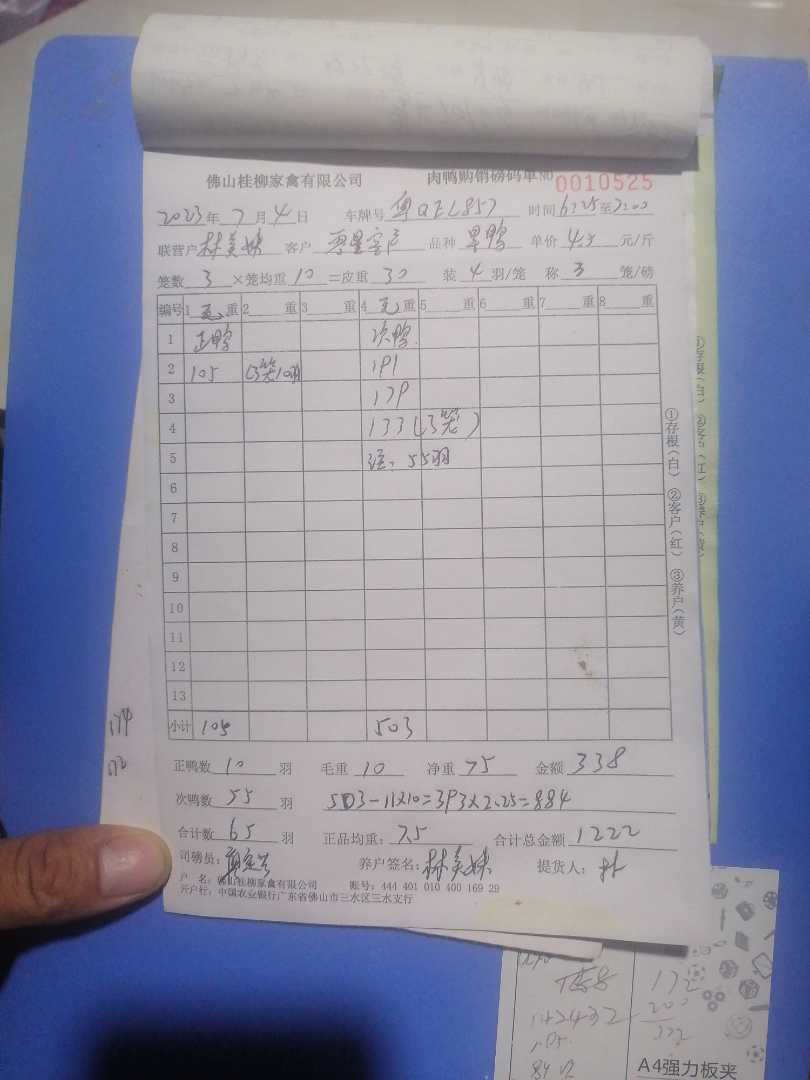 佛山桂柳家禽有限公司 肉鸭购销磅码单№ 0010525
2023年7月4日 车牌号 粤QEL857 时间6:25至7:00
联营户 林美妹 客户 零星客户 品种 旱鸭 单价 4.5 元/斤
笼数 3 ×笼均重 10 =皮重 30 装 4 羽/笼 称 3 笼/磅
编号 1 毛 重 2 重 3 重 4 毛 重 5 重 6 重 7 重 8 重
1 正鸭 次鸭
2 105 (3笼10羽 191
3 179
4 133(3笼)
5 注:55羽
6
7
8
9
10
11
12
13
小计 105 503
正鸭数 10 羽 毛重 10 净重 75 金额 338
次鸭数 55 羽 503-11×10=393×2.25=884
合计数 65 羽 正品均重: 7.5 合计总金额 1222
司磅员: 养户签名: 林美妹 提货人:
户 名: 佛山桂柳家禽有限公司 账号: 444 401 010 400 169 29
开户行: 中国农业银行广东省佛山市三水区三水支行
①存根(白) ②客户(红) ③养户(黄)
174
172
172
200
A4强力板夹